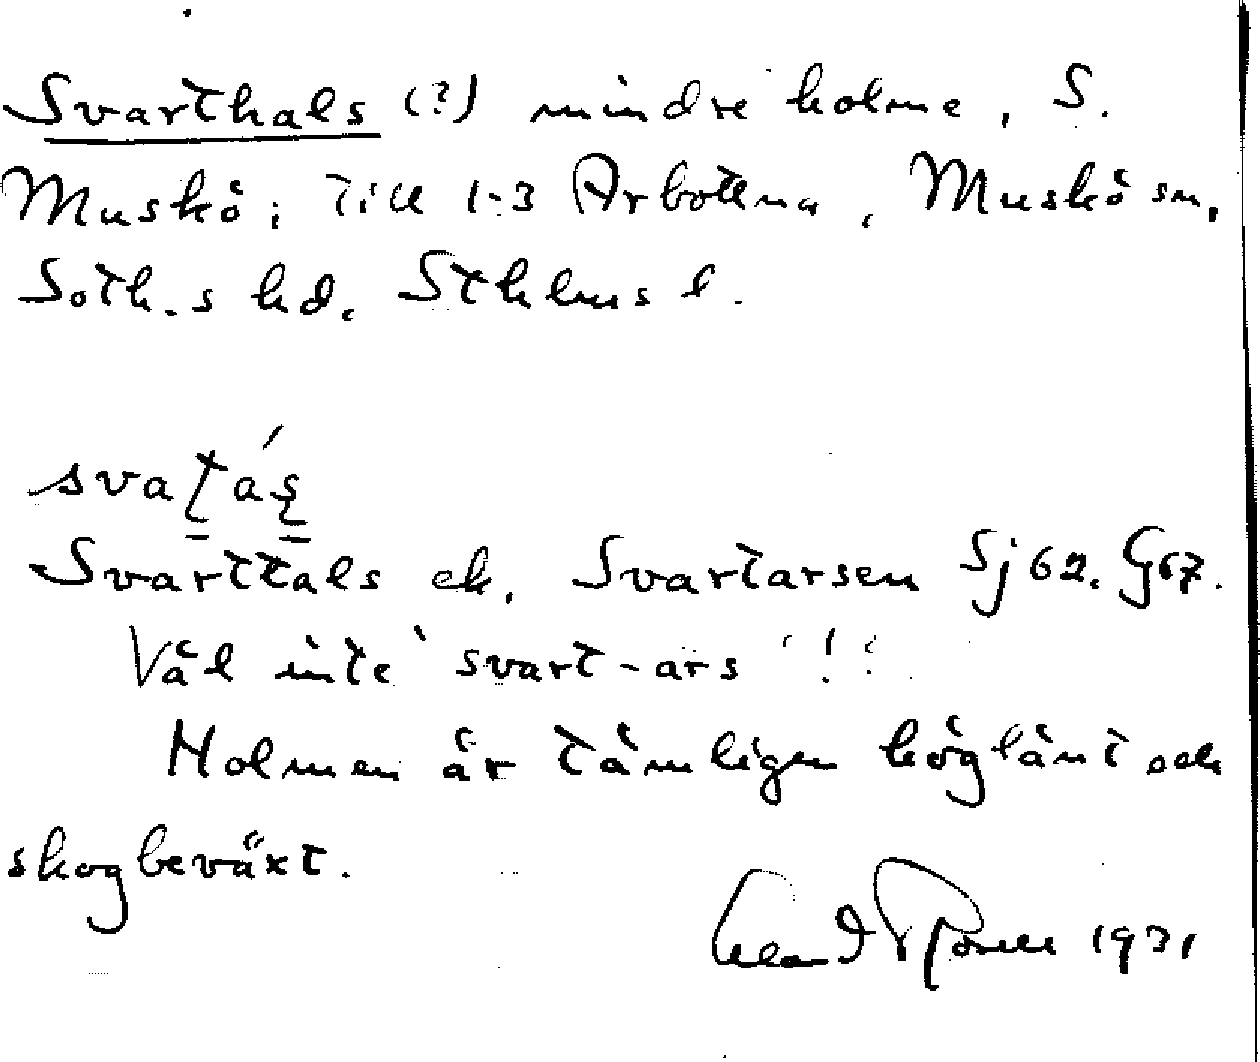 Svarthals (?) mindre holme, S.
Muskö; till 1-3 Arbottna, Muskö sn,
Soth.s hd. Sthlms l.
Svarttals ek. Svartarsen Sj 62. G 67.
Väl inte 'svart-ars'!!
Holmen är tämligen höglänt och
skogbeväxt.
1931